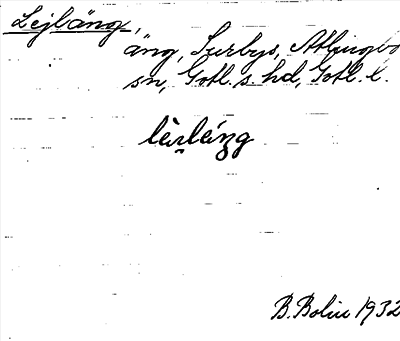 Lejläng,
äng, Surbys, Atlingbo
sn, Gotl. s. hd, Gotl. l.
B. Bolin 1932